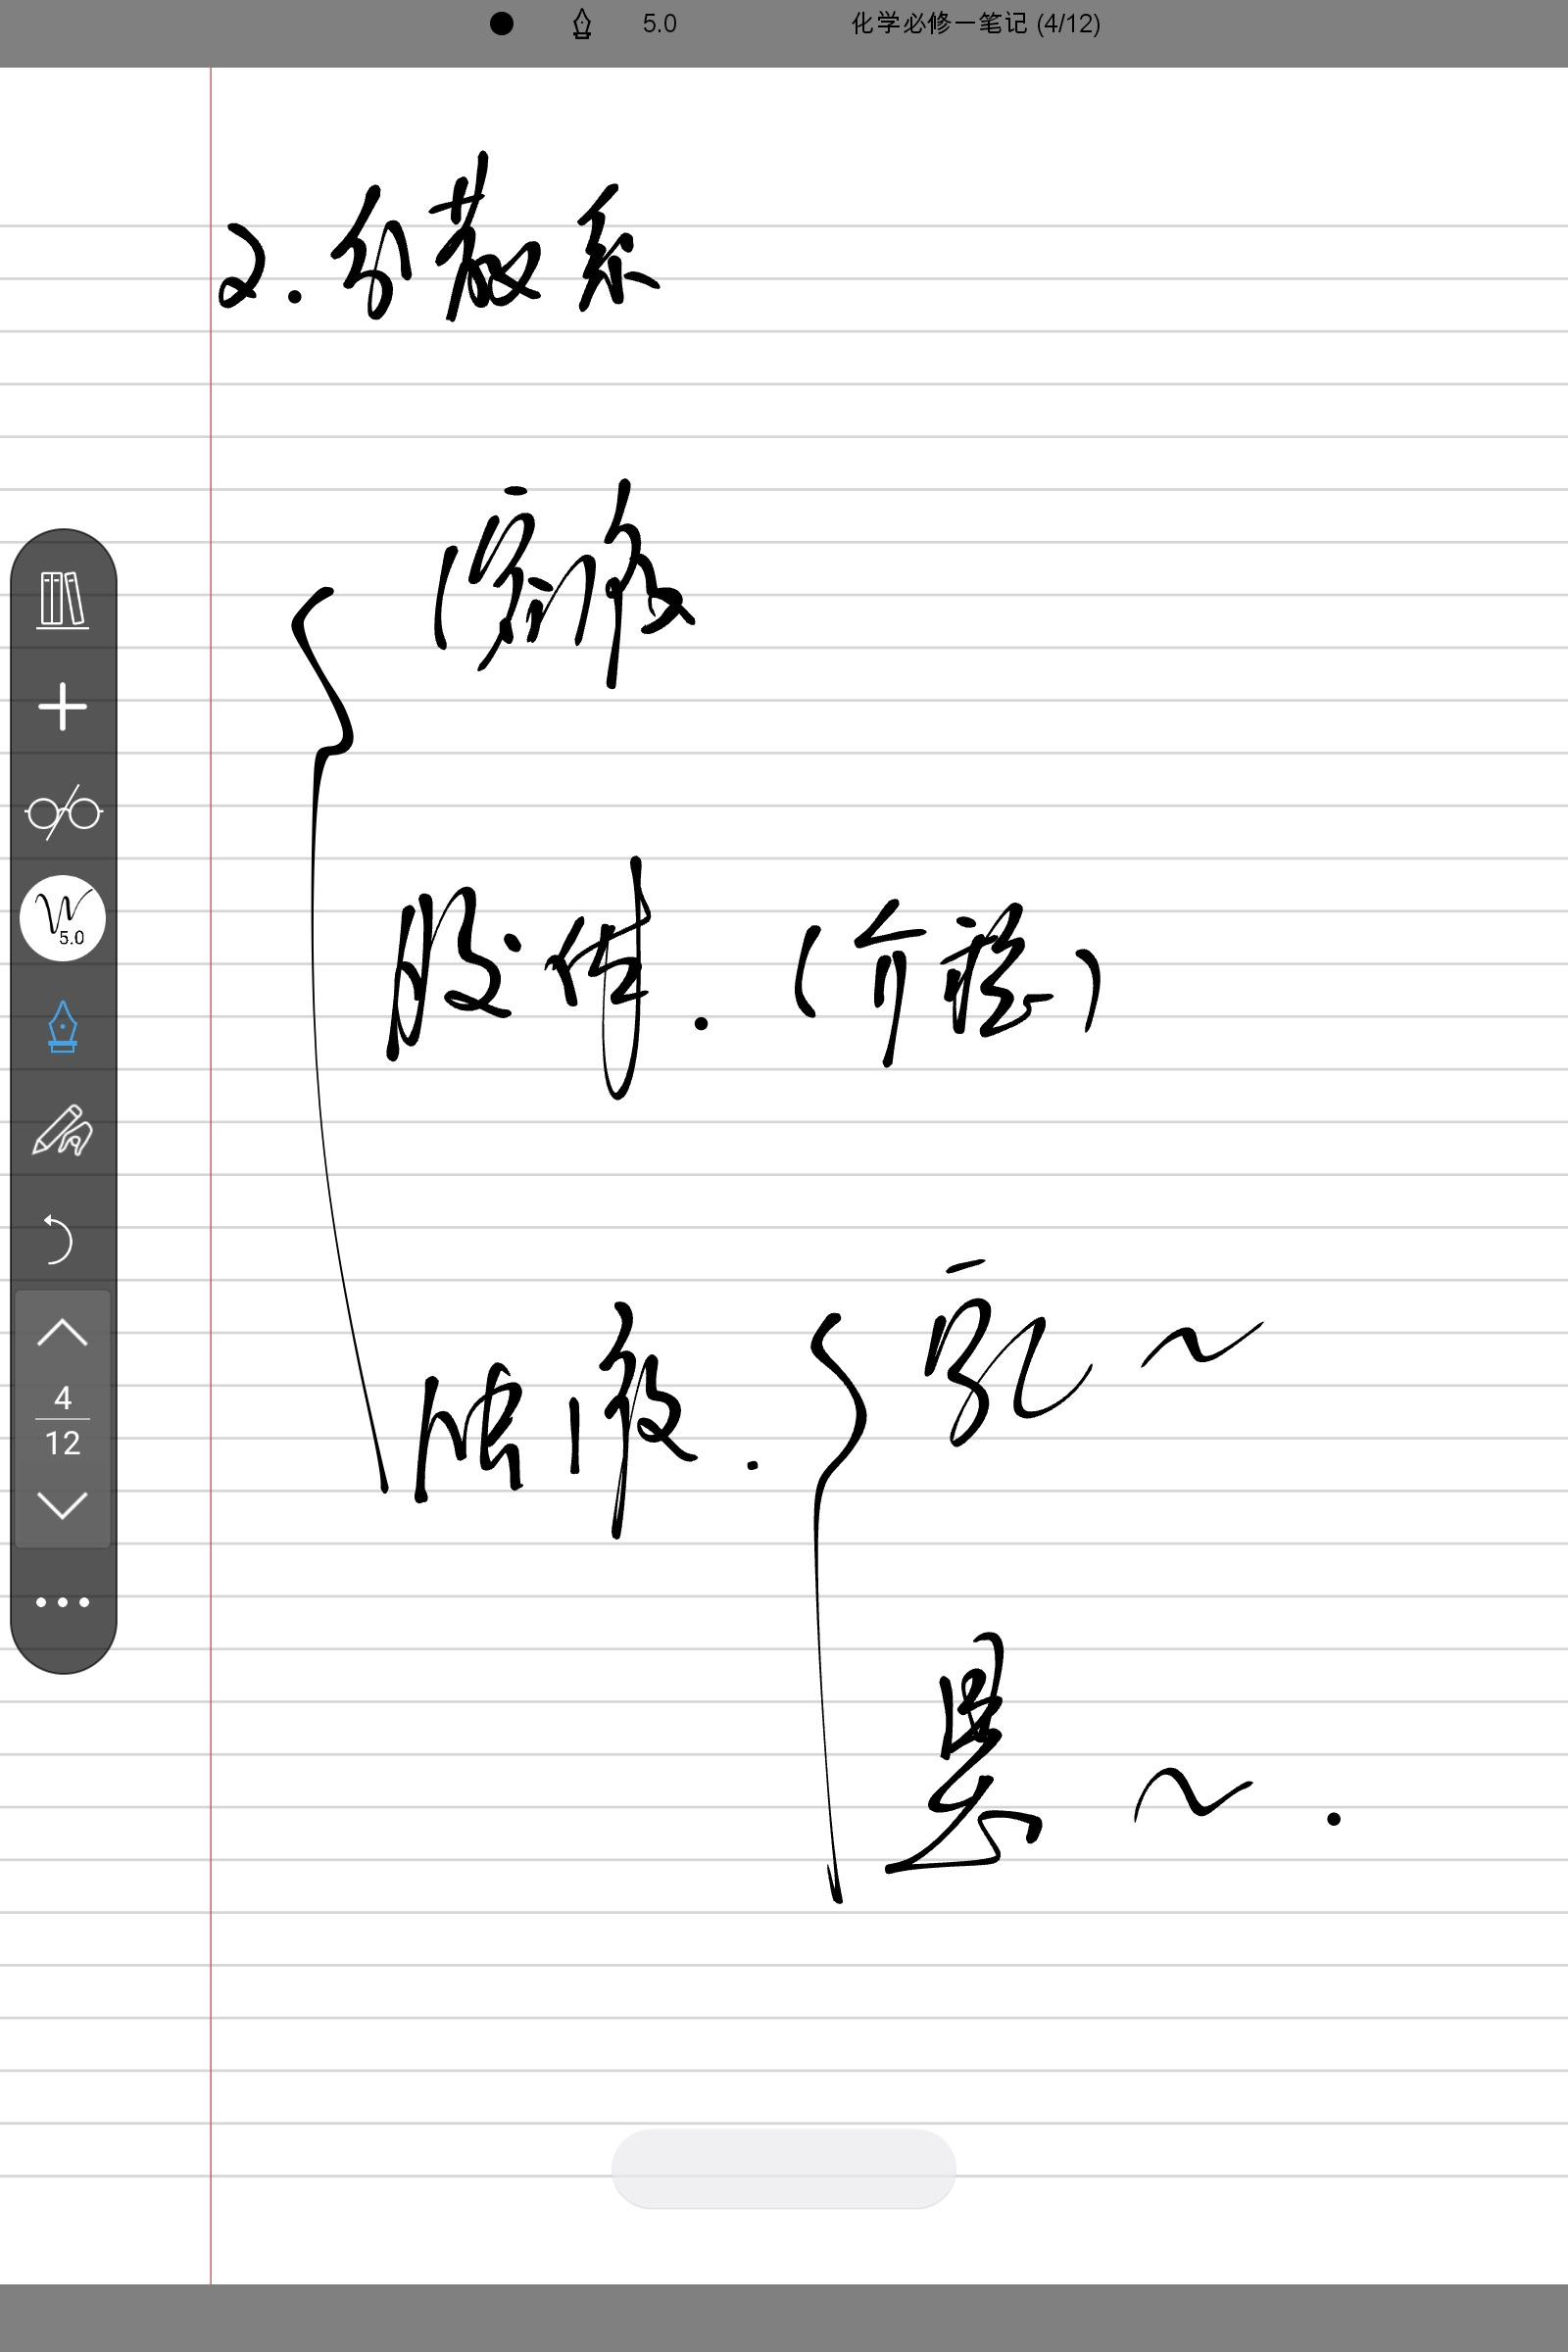 5.0 化学必修一笔记 (4/12)
2.分散系
溶液
胶体.(介稳)
浊液.
乳~
悬~.
5.0
4
12